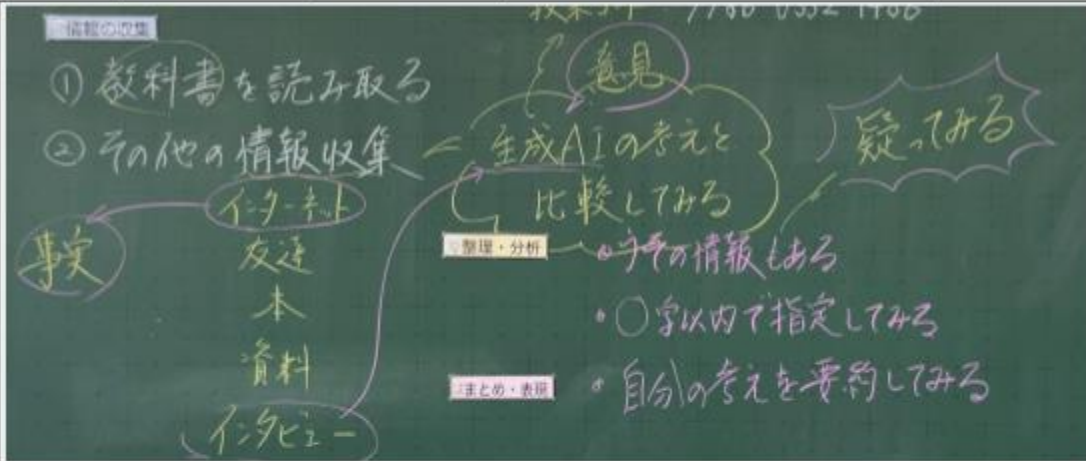 情報の収集
① 教科書を読み取る
② その他の情報収集
インターネット
事実
友達
本
資料
インタビュー
意見
生成AIの考えと
比較してみる
疑ってみる
整理・分析
・うその情報もある
・○字以内で指定してみる
まとめ・表現
・自分の考えを要約してみる